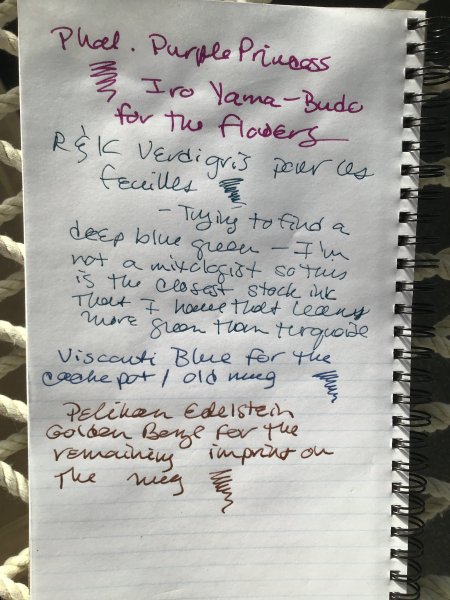 Phal. Purple Princess
Iro Yama-Budo
for the flowers
R&K Verdigris pour les
feuilles
- Trying to find a
deep blue green - I'm
not a mixologist so this
is the closest stock ink
that I have that leans
more green than turquoise
Visconti Blue for the
cachepot / old mug
Pelikan Edelstein
Golden Beryl for the
remaining imprint on
the mug